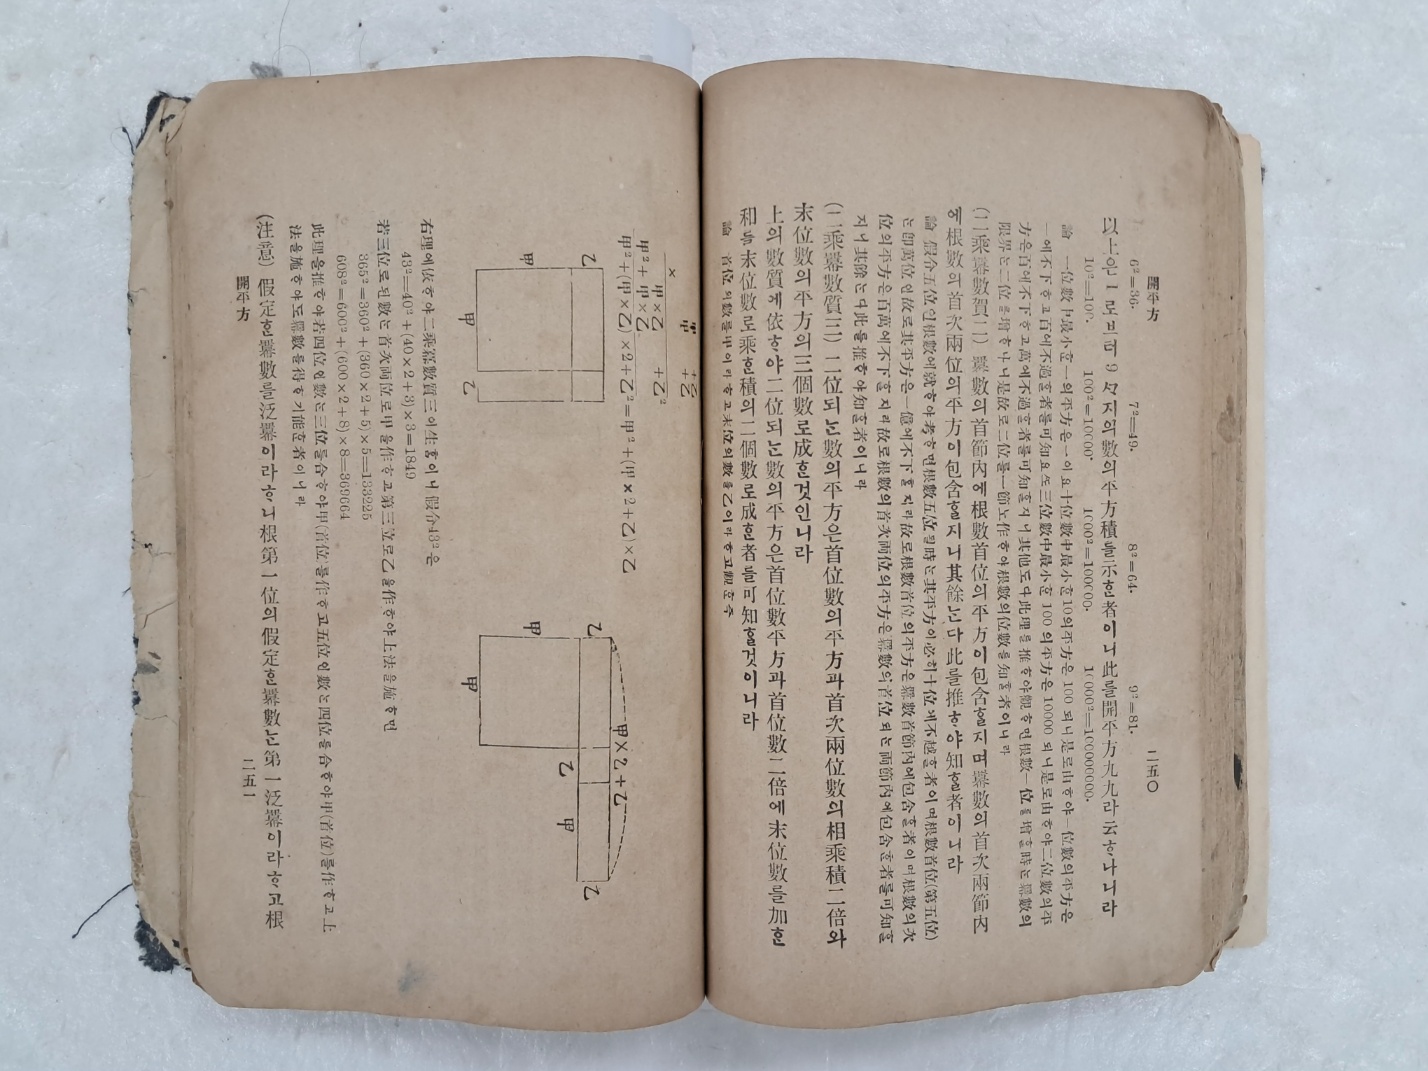 開平方 二五〇
6²=36. 7²=49. 8²=64. 9²=81.
以上은 1로브터 9 ᄭᅡ지의數의平方積을示ᄒᆞᆫ者이니此를開平方九九라云ᄒᆞ나니라
10²=100. 100²=10000. 1000²=1000000. 10000²=100000000.
論 一位數中最小ᄒᆞᆫ一의平方은一이요十位數中最小ᄒᆞᆫ10의平方은 100 되니是로由ᄒᆞ야一位數의平方은
一에不下ᄒᆞ고百에不過ᄒᆞᆯ者를可知요ᄯᅩ三位數中最小ᄒᆞᆫ 100 의平方은 10000 되니是로由ᄒᆞ야二位數의平
方은百에不下ᄒᆞ고萬에不過ᄒᆞᆯ者를可知ᄒᆞᆯ지니其他도다此理를推ᄒᆞ야觀ᄒᆞ면根數一位를增ᄒᆞᆯ時ᄂᆞᆫ羃數의
限界ᄂᆞᆫ二位를增ᄒᆞ나니是故로二位를一節노作ᄒᆞ야根數의位數를知ᄒᆞᆯ者이니라
(二乘羃數質二) 羃數의首節內에根數首位의平方이包含ᄒᆞᆯ지며羃數의首次兩節內
에根數의首次兩位의平方이包含ᄒᆞᆯ지니其餘ᄂᆞᆫ다此를推ᄒᆞ야知ᄒᆞᆯ者이니라
論 假令五位인根數에就ᄒᆞ야考ᄒᆞ면根數五位될時ᄂᆞᆫ其平方이必히十位에不越ᄒᆞᆯ者이며根數首位(第五位)
ᄂᆞᆫ卽萬位인故로其平方은一億에不下ᄒᆞᆯ지라故로根數首位의平方은羃數首節內에包含ᄒᆞᆯ者이며根數의次
位의平方은百萬에不下ᄒᆞᆯ지라故로根數의首次兩位의平方은羃數의首位되ᄂᆞᆫ兩節內에包含ᄒᆞᆫ者를可知ᄒᆞᆯ
지니其餘ᄂᆞᆫ다此를推ᄒᆞ야知ᄒᆞᆯ者이니라
(二乘羃數質三) 二位되ᄂᆞᆫ數의平方은首位數의平方과首次兩位數의相乘積二倍와
末位數의平方의三個數로成ᄒᆞᆫ것인니라
上의數質에依ᄒᆞ야二位되ᄂᆞᆫ數의平方은首位數平方과首位數二倍에末位數를加ᄒᆞᆫ
和를末位數로乘ᄒᆞᆫ積의二個數로成ᄒᆞᆫ者를可知ᄒᆞᆯ것이니라
論 首位의數를甲이라ᄒᆞ고末位의數를乙이라ᄒᆞ고觀ᄒᆞᆫ즉
甲+乙
× 甲+乙
甲×乙 +乙²
甲²+ 甲×乙
甲²+(甲×乙)×2+乙²=甲²+(甲×2+乙)×乙
甲 乙
甲
乙
甲 乙
甲
甲×2+乙
乙 甲 乙
右理에依ᄒᆞ야二乘羃數質三이生ᄒᆞᆷ이니 假令43²은
43²=40²+(40×2+3)×3=1849
若三位로된數ᄂᆞᆫ首次兩位로甲을作ᄒᆞ고第三位로乙을作ᄒᆞ야上法을施ᄒᆞ면
365²=360²+(360×2+5)×5=133225
608²=600²+(600×2+8)×8=369664
此理를推ᄒᆞ야若四位인數ᄂᆞᆫ三位를合ᄒᆞ야甲(首位)를作ᄒᆞ고五位인數ᄂᆞᆫ四位를合ᄒᆞ야甲(首位)를作ᄒᆞ고上
法을施ᄒᆞ야도羃數를得ᄒᆞ기能ᄒᆞᆫ者이니라
(注意) 假定ᄒᆞᆫ羃數를泛羃이라ᄒᆞ니根第一位의假定ᄒᆞᆫ羃數ᄂᆞᆫ第一泛羃이라ᄒᆞ고根
開平方 二五一